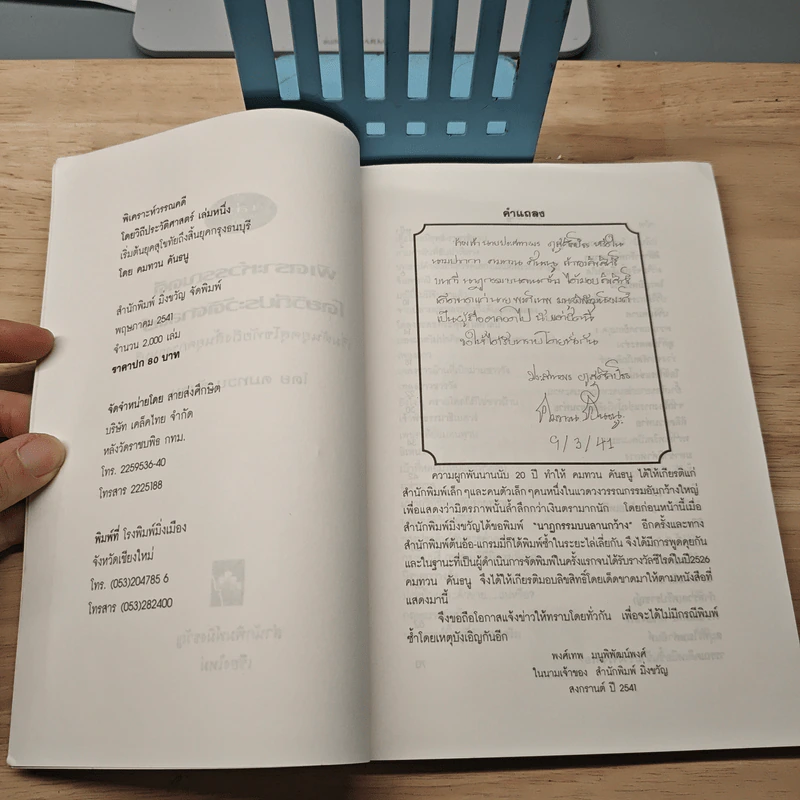 พิเคราะห์วรรณคดี
โดยวิถีประวัติศาสตร์ เล่มหนึ่ง
เริ่มต้นยุคสุโขทัยถึงสิ้นยุคกรุงธนบุรี
โดย คมทวน คันธนู
สำนักพิมพ์ มิ่งขวัญ จัดพิมพ์
พฤษภาคม 2541
จำนวน 2,000 เล่ม
ราคาปก 80 บาท
จัดจำหน่ายโดย สายส่งศึกษิต
บริษัท เคล็ดไทย จำกัด
หลังวัดราชบพิธ กทม.
โทร. 2259536-40
โทรสาร 2225188
พิมพ์ที่ โรงพิมพ์มิ่งเมือง
จังหวัดเชียงใหม่
โทร. (053)204785 6
โทรสาร (053)282400
คำแถลง
คมทวน คันธนู
เป็นผู้ถือ
ขอให้ได้รับทราบโดยทั่วกัน
คมทวน คันธนู
9/3/41
ความผูกพันนานนับ 20 ปี ทำให้ คมทวน คันธนู ได้ให้เกียรติแก่
สำนักพิมพ์เล็กๆและคนตัวเล็กๆคนหนึ่งในแวดวงวรรณกรรมอันกว้างใหญ่
เพื่อแสดงว่ามิตรภาพนั้นล้ำลึกกว่าเงินตรามากนัก โดยก่อนหน้านี้เมื่อ
สำนักพิมพ์มิ่งขวัญได้ขอพิมพ์ "นาฏกรรมบนลานกว้าง" อีกครั้งและทาง
สำนักพิมพ์ต้นอ้อ-แกรมมี่ก็ได้พิมพ์ซ้ำในระยะไล่เลี่ยกัน จึงได้มีการพูดคุยกัน
และในฐานะที่เป็นผู้ดำเนินการจัดพิมพ์ในครั้งแรกจนได้รับรางวัลซีไรต์ในปี2526
คมทวน คันธนู จึงได้ให้เกียรติมอบลิขสิทธิ์โดยเด็ดขาดมาให้ตามหนังสือที่
แสดงมานี้
จึงขอถือโอกาสแจ้งข่าวให้ทราบโดยทั่วกัน เพื่อจะได้ไม่มีกรณีพิมพ์
ซ้ำโดยเหตุบังเอิญกันอีก
พงศ์เทพ มนูพิพัฒน์พงศ์
ในนามเจ้าของ สำนักพิมพ์ มิ่งขวัญ
สงกรานต์ ปี 2541